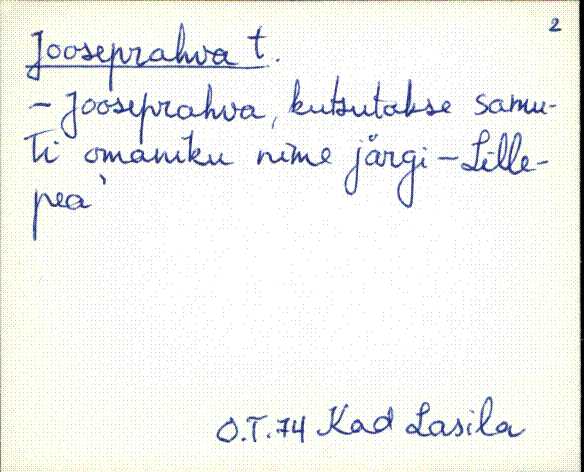 2
Jooseprahva t.
- Jooseprahva, kutsutakse samu-
ti omaniku nime järgi - Lille-
pea`
O.T. 74 Kad Lasila